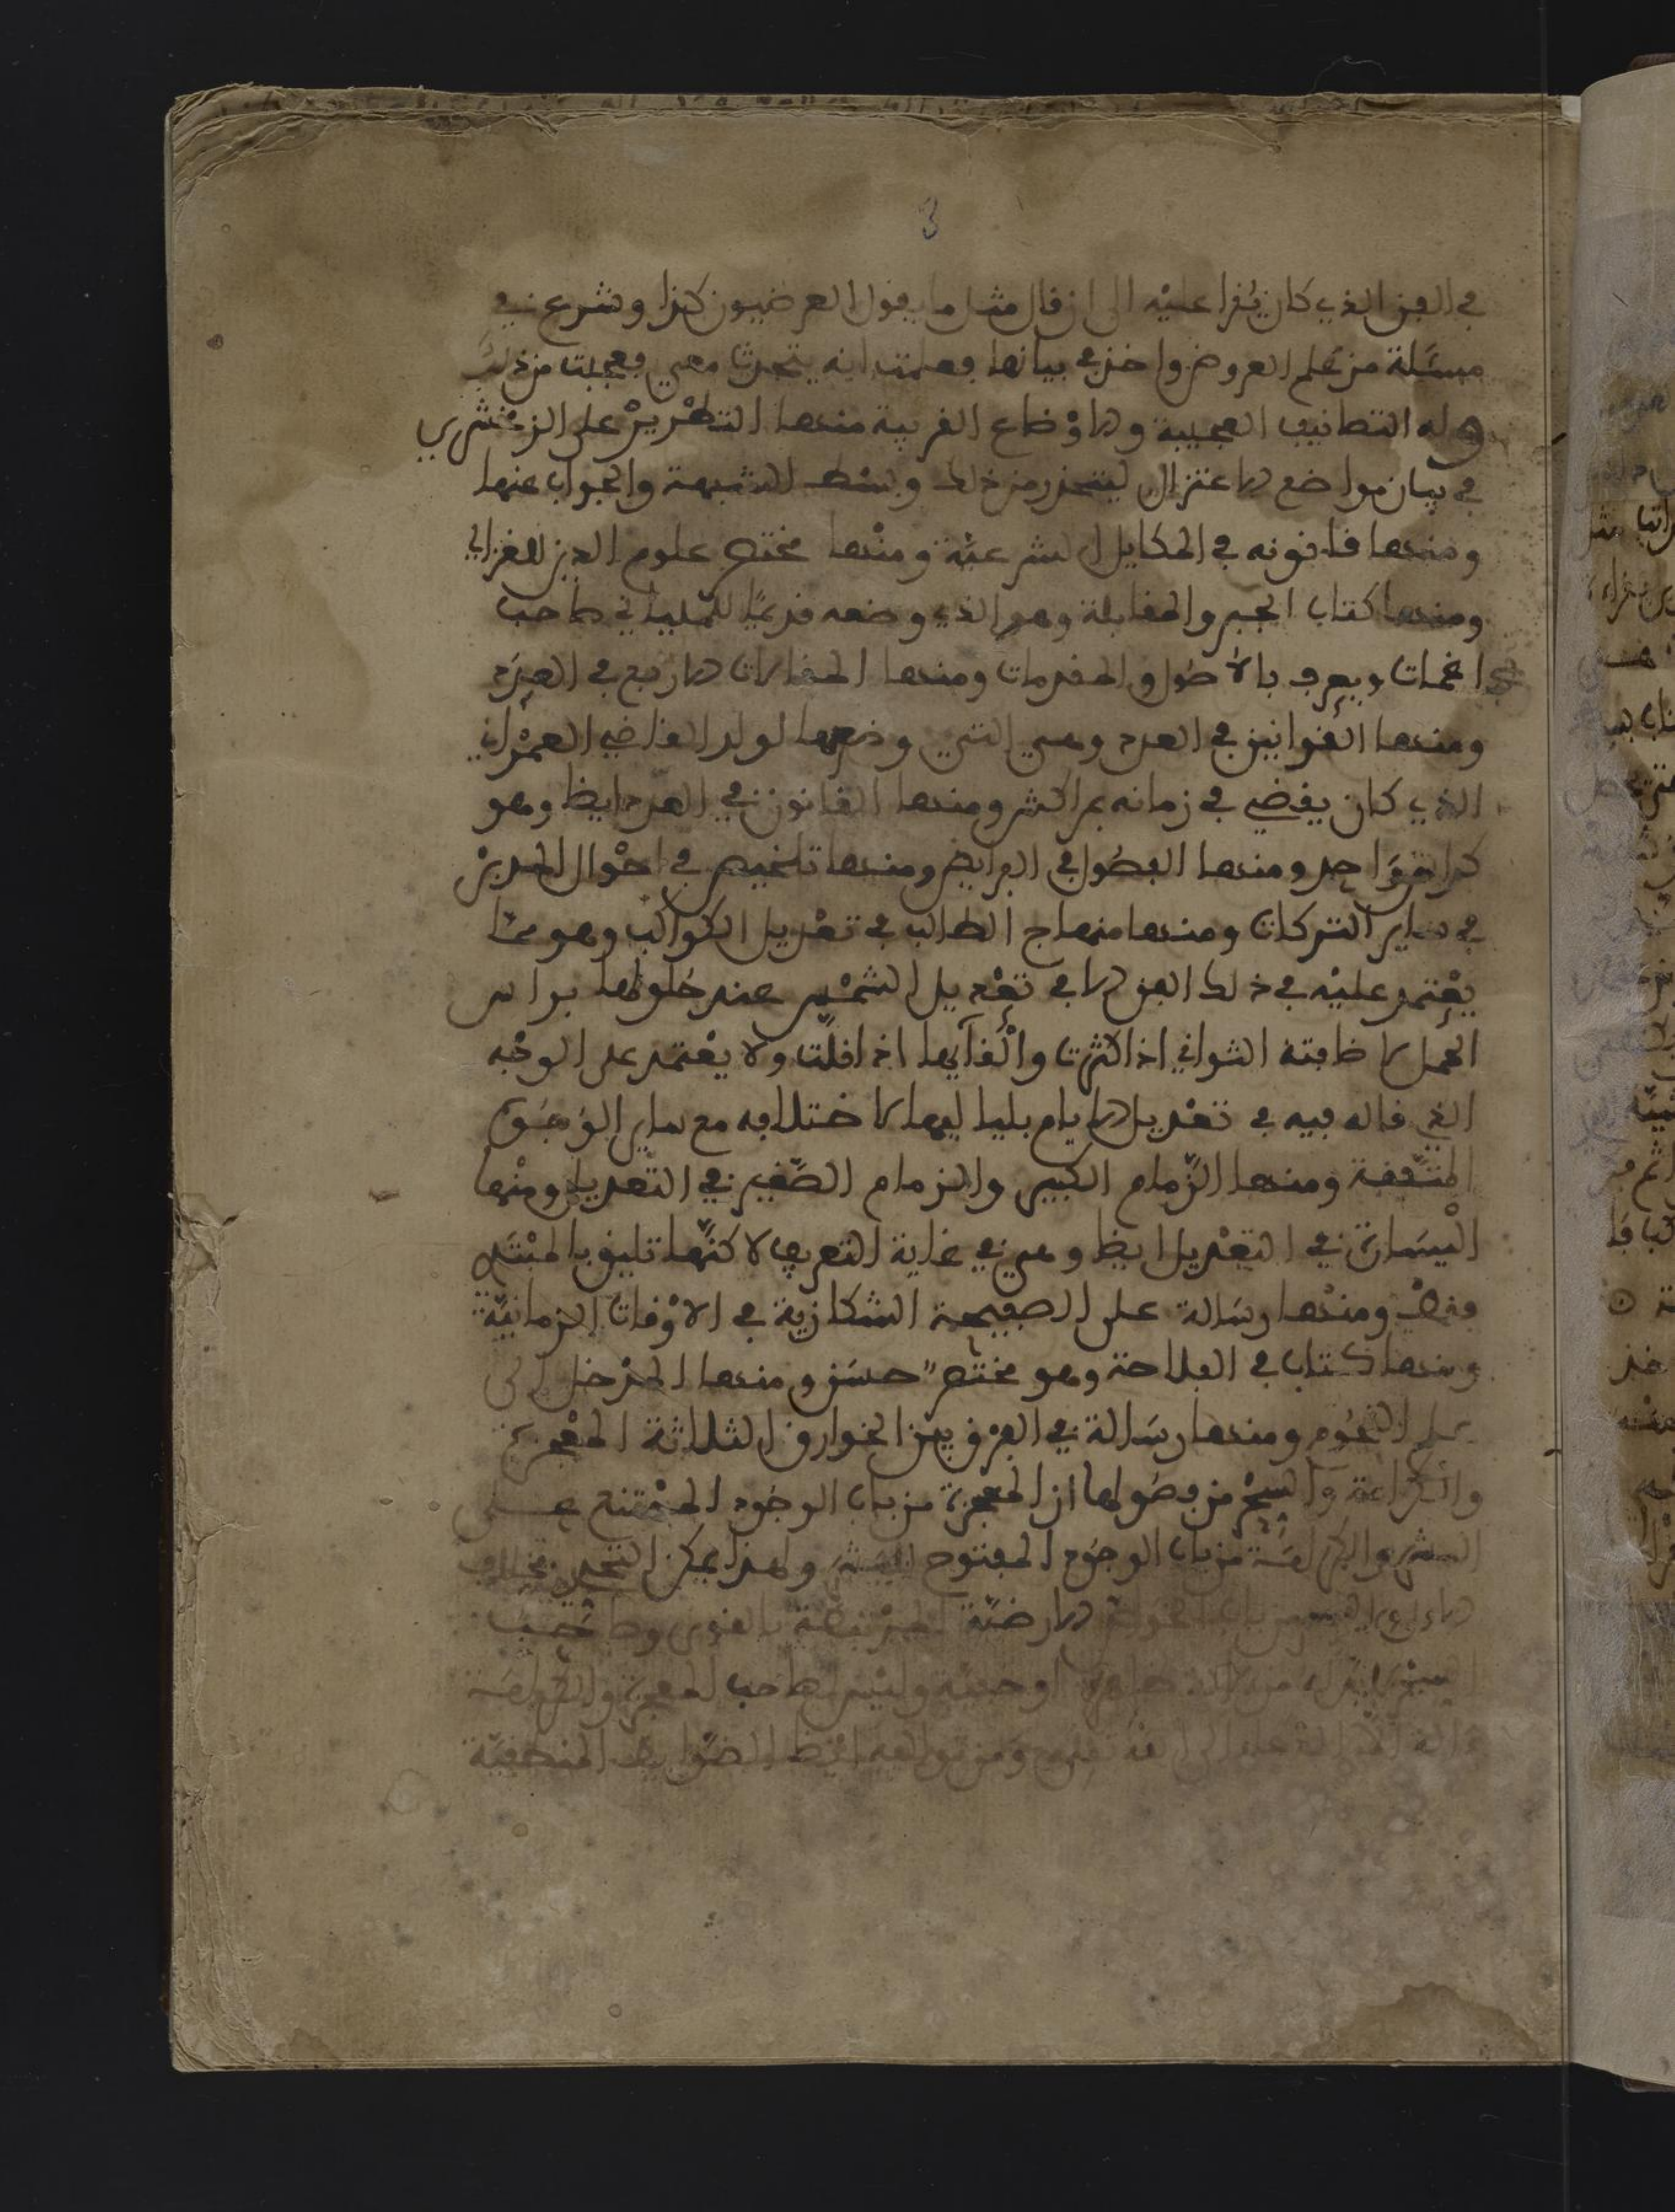 3
في الفن الذي كان يُقرا عليْه الى ان قال مثل ما يقول العرضيون كذا وشرع في
مسئلة من علم العروض واخذ في بيانها فعلمت انه يتحدث معي فعجبت من ذلك
وله التصانيف العجيبة والاوْضاع الغريبة منها التطْريزْ على الزمخشري
في بيان مواضع الاعتزال ليتحذر من ذلك وبسْط الشبهة والجواب عنها
ومنها قانونه في المكايل الشرعيّة ومنْها مختصر علوم الدين للغزالي
ومنها كتاب الجبر والمقابلة وهو الذي وضعه قديمًا للمليانى صاحب
اغمات ويعرف بالأصُول والمقدمات ومنها المقالات الاربع في العدد
ومنها القوانين في العدد وهي التي وضعها لولد القاضي العمْراني
الذي كان يقضي في زمانه بمراكش ومنها القانون في العدد ايضا وهو
كراس وَاحد ومنها الفصُول في الفرايض ومنها تلخيص في احْوال الجديْن
في ساير التركات ومنها منهاج الطالب في تعْديل الكواكب وهو ممّا
يعْتمد عليْه في ذلك الفن الا في تعْديل الشمْس عند حُلولها براس
الحمل لاضافته الثواني اذا كثرت وإلْغآيها اذا قلّت ولا يعْتمد على الوجْه
الذي قاله فيه في تعْديل الايام بلياليها لاختلافه مع ساير الوُجُوه
المتّفقة ومنها الزّمام الكبير والزمام الصّغير في التّعديل ومنْها
الْيسَارة في التعْديل ايضا وهي في غاية التعريب لاكنّها تليق بالمبْتَدى
فقطْ ومنْها رسَالة على الصفيحة الشكازية في الاوْقات الزمانيّة
ومنها كتاب في الفلاحة وهو مختصرٌ حسَن ومنها المدْخل الى
علم النّجُوم ومنها رسَالة في الفرْق بيْن الخوارق الثلاثة المعْجزة
والكرامة والسِّحْر من فصُولها ان المعجزة من باب الوجُود الممْتنع على
البشر والكرامَة من باب الوجُود المفتوح للبشَر ولهذا يمكن التحدي بخلاف
الارضيّة المرْتبطة بالقوى وصَاحبُ
السِّحْر او خفيّة وليْس لصَاحب المعجزة والكرامَة
ومن تواليفه ايْضا الضّوابط المنطقيّة